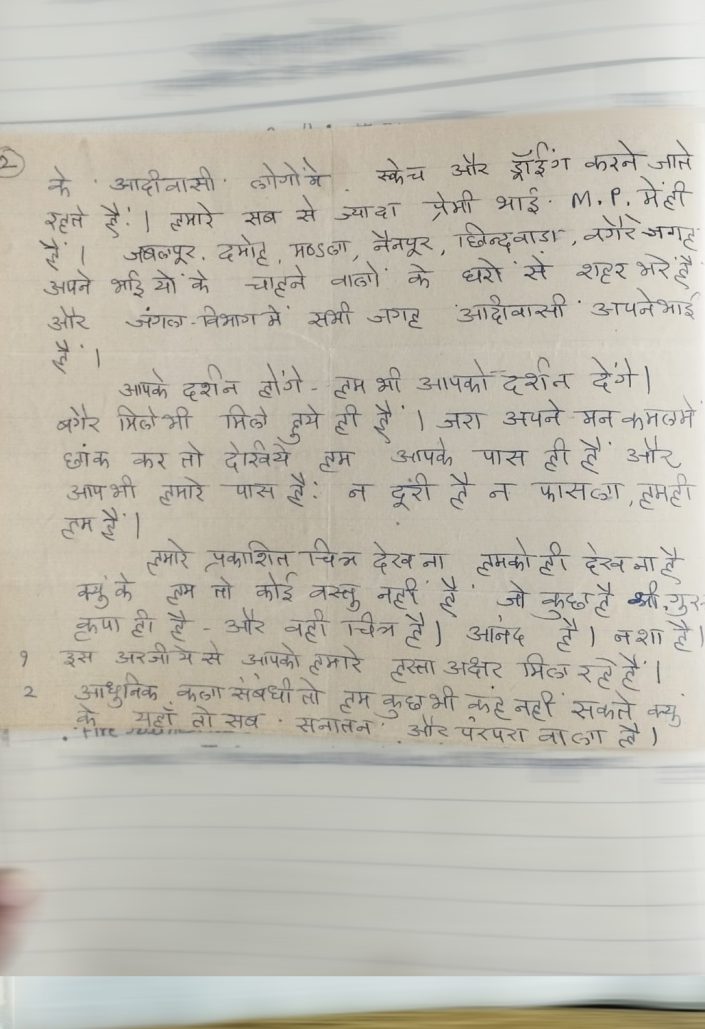 2
के आदीवासी लोगोंमे स्केच और ड्रॉईंग करने जाते
रहते हैं। हमारे सब से ज्यादा प्रेमी भाई M.P. में ही
हैं। जबलपूर, दमोह, मण्डला, नैनपूर, छिन्दवाडा, वगैरे जगह
अपने भाईयों के चाहने वालों के घरों से शहर भरे हैं
और जंगल-विभाग में सभी जगह आदीवासी अपनेभाई
हैं।
आपके दर्शन होंगे - हम भी आपको दर्शन देंगे।
बगैर मिले भी मिले हुये ही हैं। जरा अपने मन कमलमें
छांक कर तो देखिये हम आपके पास ही हैं और
आपभी हमारे पास हैं: न दूरी है न फासला, हमही
हम हैं।
हमारे प्रकाशित चित्र देख ना हमको ही देख ना है
क्युं के हम तो कोई वस्तु नहीं हैं जो कुछ है श्री. गुरु-
कृपा ही है - और वही चित्र है। आनंद है। नशा है।
१ इस अरजीये से आपको हमारे हस्ता अक्षर मिल रहे हैं।
२ आधुनिक कला संबंधी तो हम कुछभी कह नहीं सकते क्युं
के यहाँ तो सब सनातन और परंपरा वाला है।